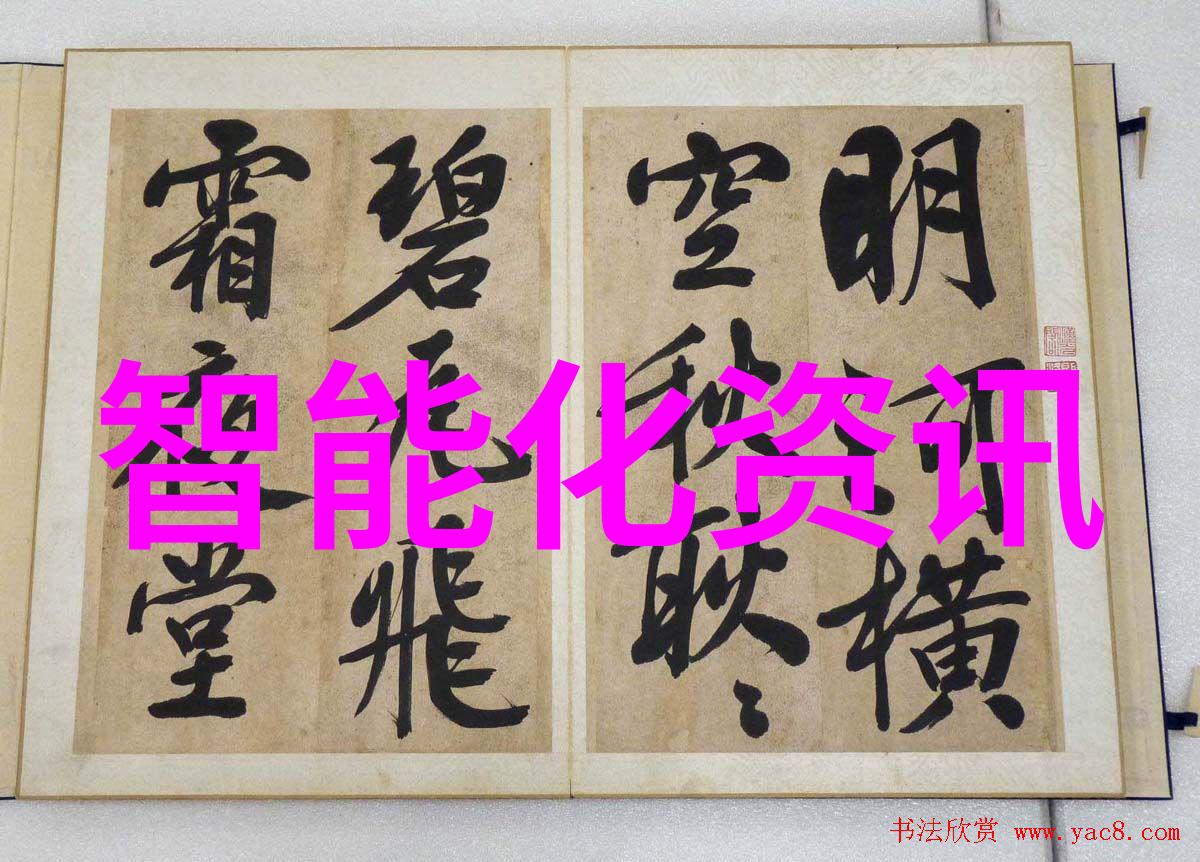 明河橫
空秋耿〻
碧瓦飛
霜夜堂
智能化资讯
书法欣赏 www.yac8.com